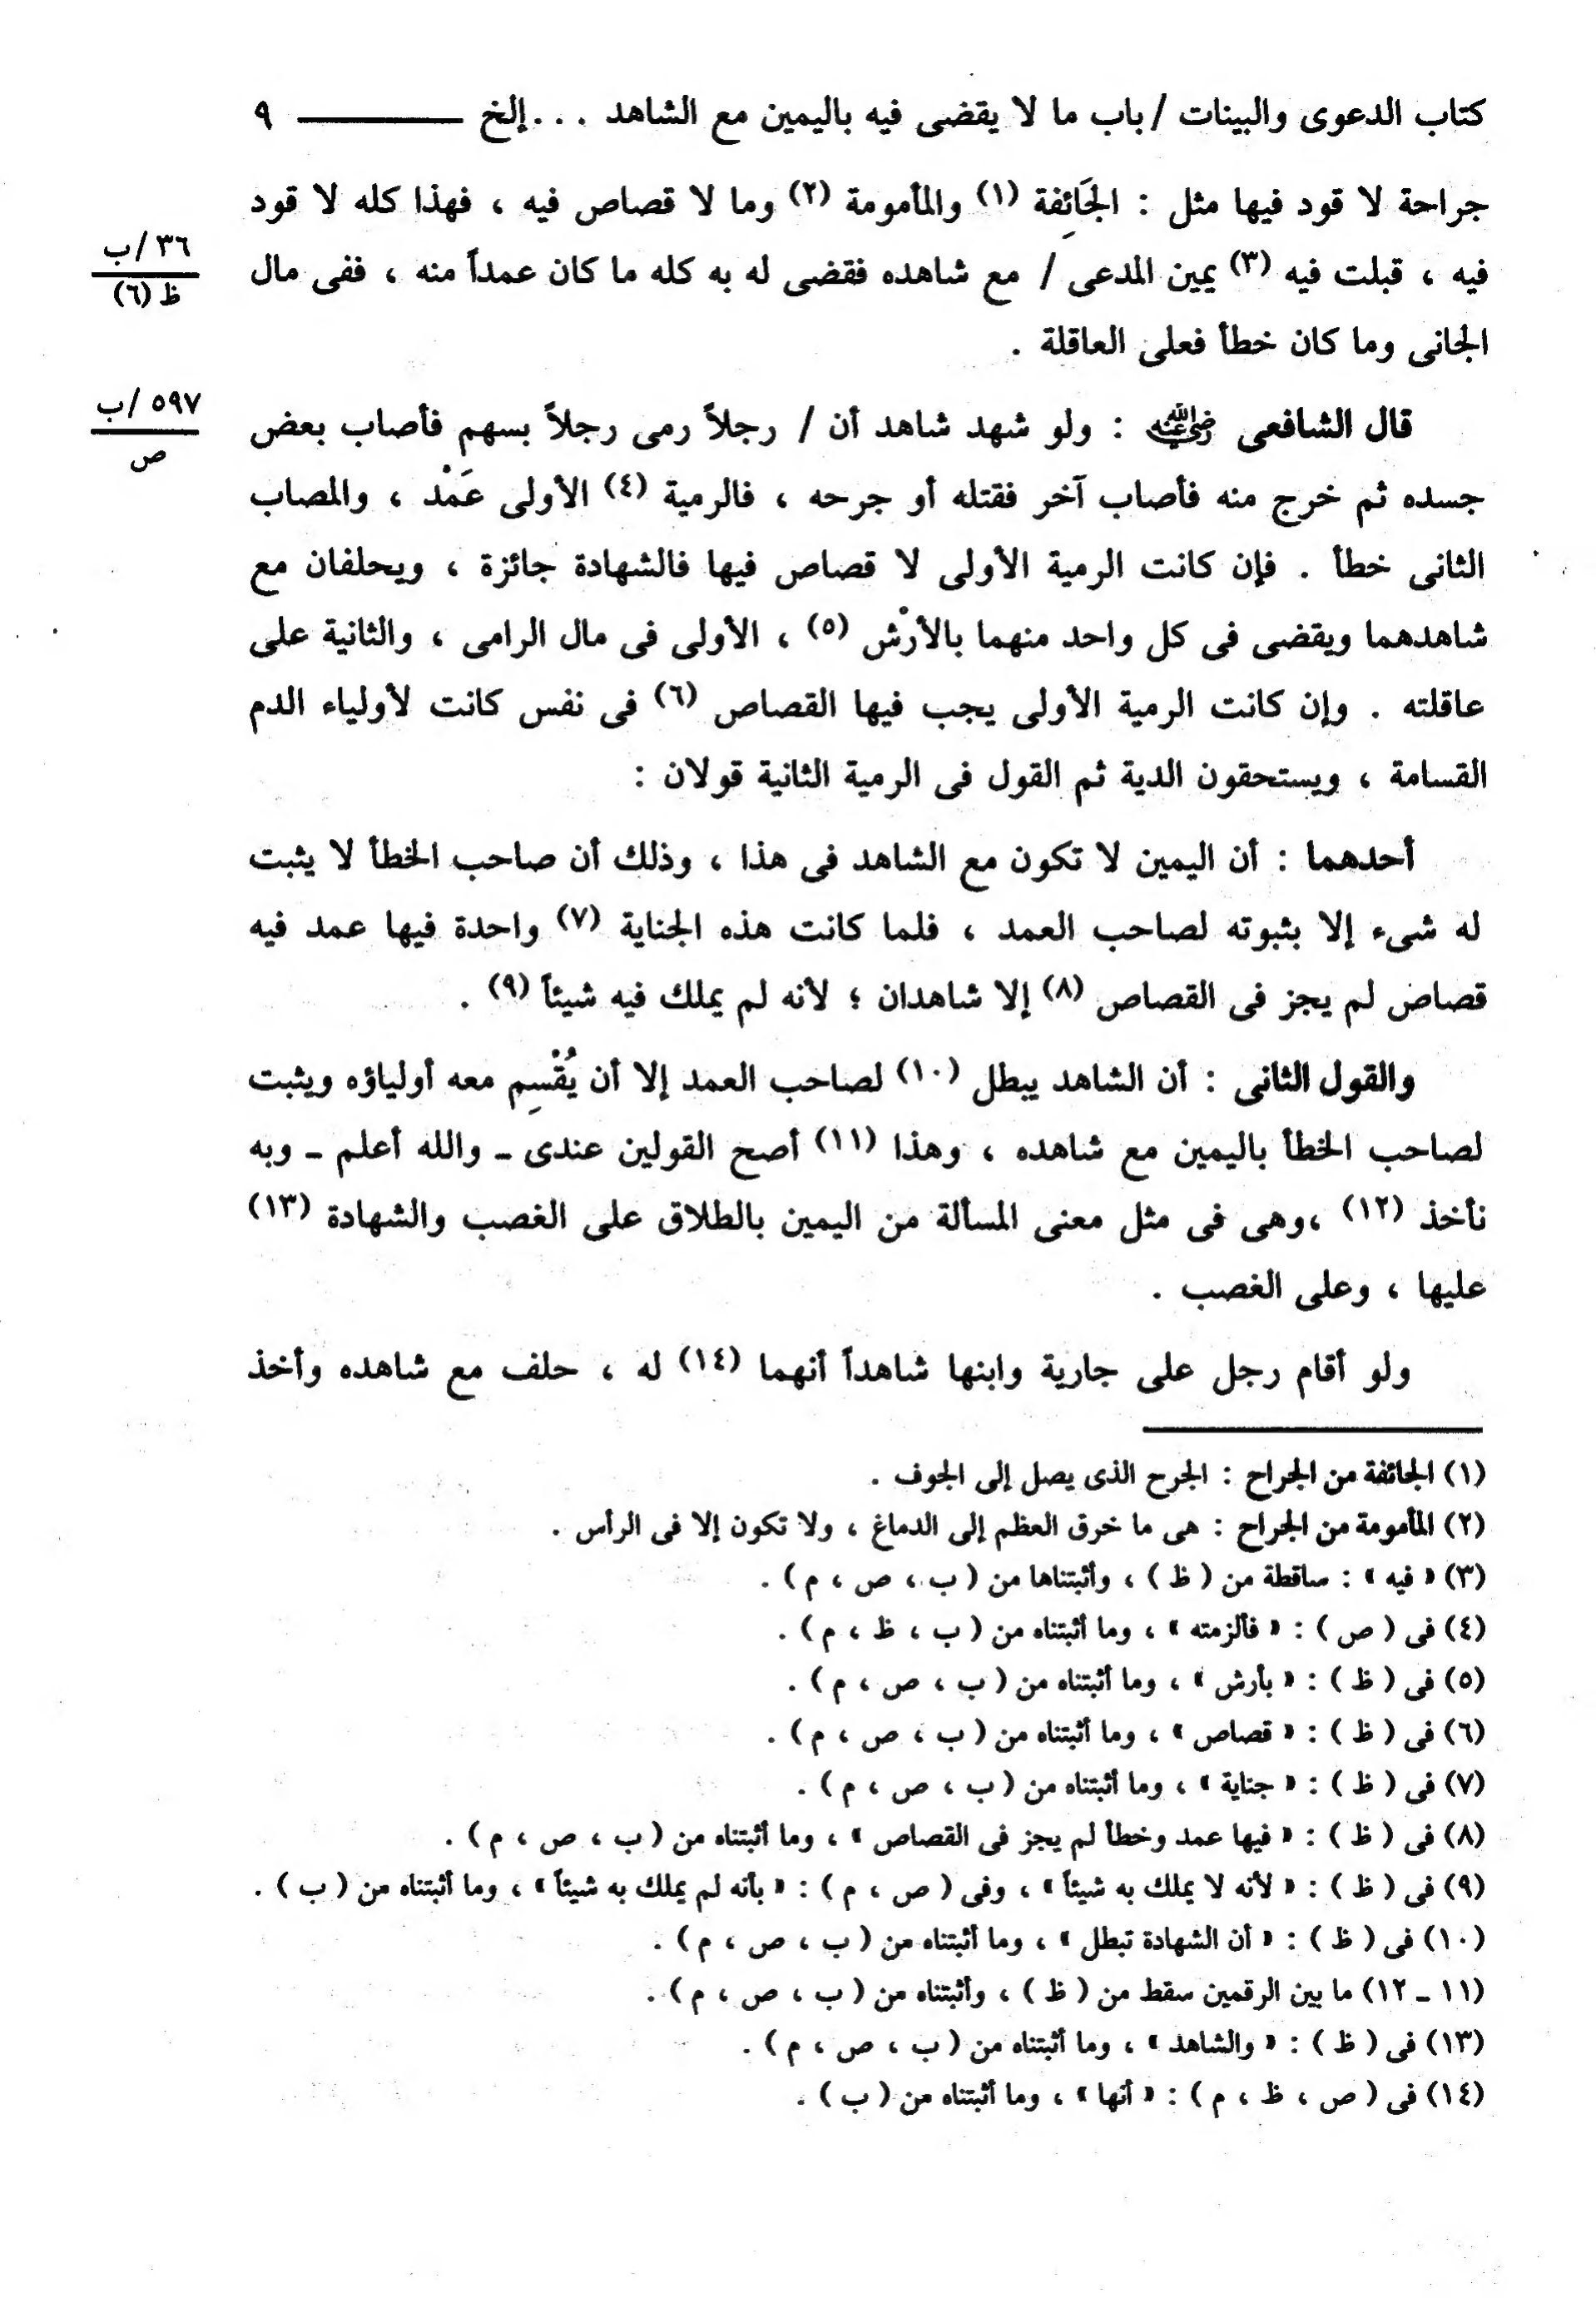 كتاب الدعوى والبينات / باب ما لا يقضى فيه باليمين مع الشاهد ... إلخ ــــــــــ ٩
جراحة لا قود فيها مثل : الجَائِفة (١) والمأمومة (٢) وما لا قصاص فيه ، فهذا كله لا قود
٣٦ /ب
ظ (٦)
فيه ، قبلت فيه (٣) يمين المدعى / مع شاهده فقضى له به كله ما كان عمداً منه ، ففى مال
الجانى وما كان خطأ فعلى العاقلة .
٥٩٧ /ب
ص
قال الشافعى رضي الله عنه : ولو شهد شاهد أن / رجلاً رمى رجلاً بسهم فأصاب بعض
جسده ثم خرج منه فأصاب آخر فقتله أو جرحه ، فالرمية (٤) الأولى عَمْد ، والمصاب
الثانى خطأ . فإن كانت الرمية الأولى لا قصاص فيها فالشهادة جائزة ، ويحلفان مع
شاهدهما ويقضى فى كل واحد منهما بالأرْش (٥) ، الأولى فى مال الرامى ، والثانية على
عاقلته . وإن كانت الرمية الأولى يجب فيها القصاص (٦) فى نفس كانت لأولياء الدم
القسامة ، ويستحقون الدية ثم القول فى الرمية الثانية قولان :
أحدهما : أن اليمين لا تكون مع الشاهد فى هذا ، وذلك أن صاحب الخطأ لا يثبت
له شىء إلا بثبوته لصاحب العمد ، فلما كانت هذه الجناية (٧) واحدة فيها عمد فيه
قصاص لم يجز فى القصاص (٨) إلا شاهدان ؛ لأنه لم يملك فيه شيئاً (٩) .
والقول الثانى : أن الشاهد يبطل (١٠) لصاحب العمد إلا أن يُقْسِم معه أولياؤه ويثبت
لصاحب الخطأ باليمين مع شاهده ، وهذا (١١) أصح القولين عندى ـ والله أعلم ـ وبه
نأخذ (١٢) ،وهى فى مثل معنى المسألة من اليمين بالطلاق على الغصب والشهادة (١٣)
عليها ، وعلى الغصب .
ولو أقام رجل على جارية وابنها شاهداً أنهما (١٤) له ، حلف مع شاهده وأخذ
(١) الجائفة من الجراح : الجرح الذى يصل إلى الجوف .
(٢) المأمومة من الجراح : هى ما خرق العظم إلى الدماغ ، ولا تكون إلا فى الرأس .
(٣) « فيه » : ساقطة من ( ظ ) ، وأثبتناها من ( ب ، ص ، م ) .
(٤) فى ( ص ) : « فألزمته » ، وما أثبتناه من ( ب ، ظ ، م ) .
(٥) فى ( ظ ) : « بأرش » ، وما أثبتناه من ( ب ، ص ، م ) .
(٦) فى ( ظ ) : « قصاص » ، وما أثبتناه من ( ب ، ص ، م ) .
(٧) فى ( ظ ) : « جناية » ، وما أثبتناه من ( ب ، ص ، م ) .
(٨) فى ( ظ ) : « فيها عمد وخطأ لم يجز فى القصاص » ، وما أثبتناه من ( ب ، ص ، م ) .
(٩) فى ( ظ ) : « لأنه لا يملك به شيئاً » ، وفى ( ص ، م ) : « بأنه لم يملك به شيئاً » ، وما أثبتناه من ( ب ) .
(١٠) فى ( ظ ) : « أن الشهادة تبطل » ، وما أثبتناه من ( ب ، ص ، م ) .
(١١ ـ ١٢) ما بين الرقمين سقط من ( ظ ) ، وأثبتناه من ( ب ، ص ، م ) .
(١٣) فى ( ظ ) : « والشاهد » ، وما أثبتناه من ( ب ، ص ، م ) .
(١٤) فى ( ص ، ظ ، م ) : « أنها » ، وما أثبتناه من ( ب ) .